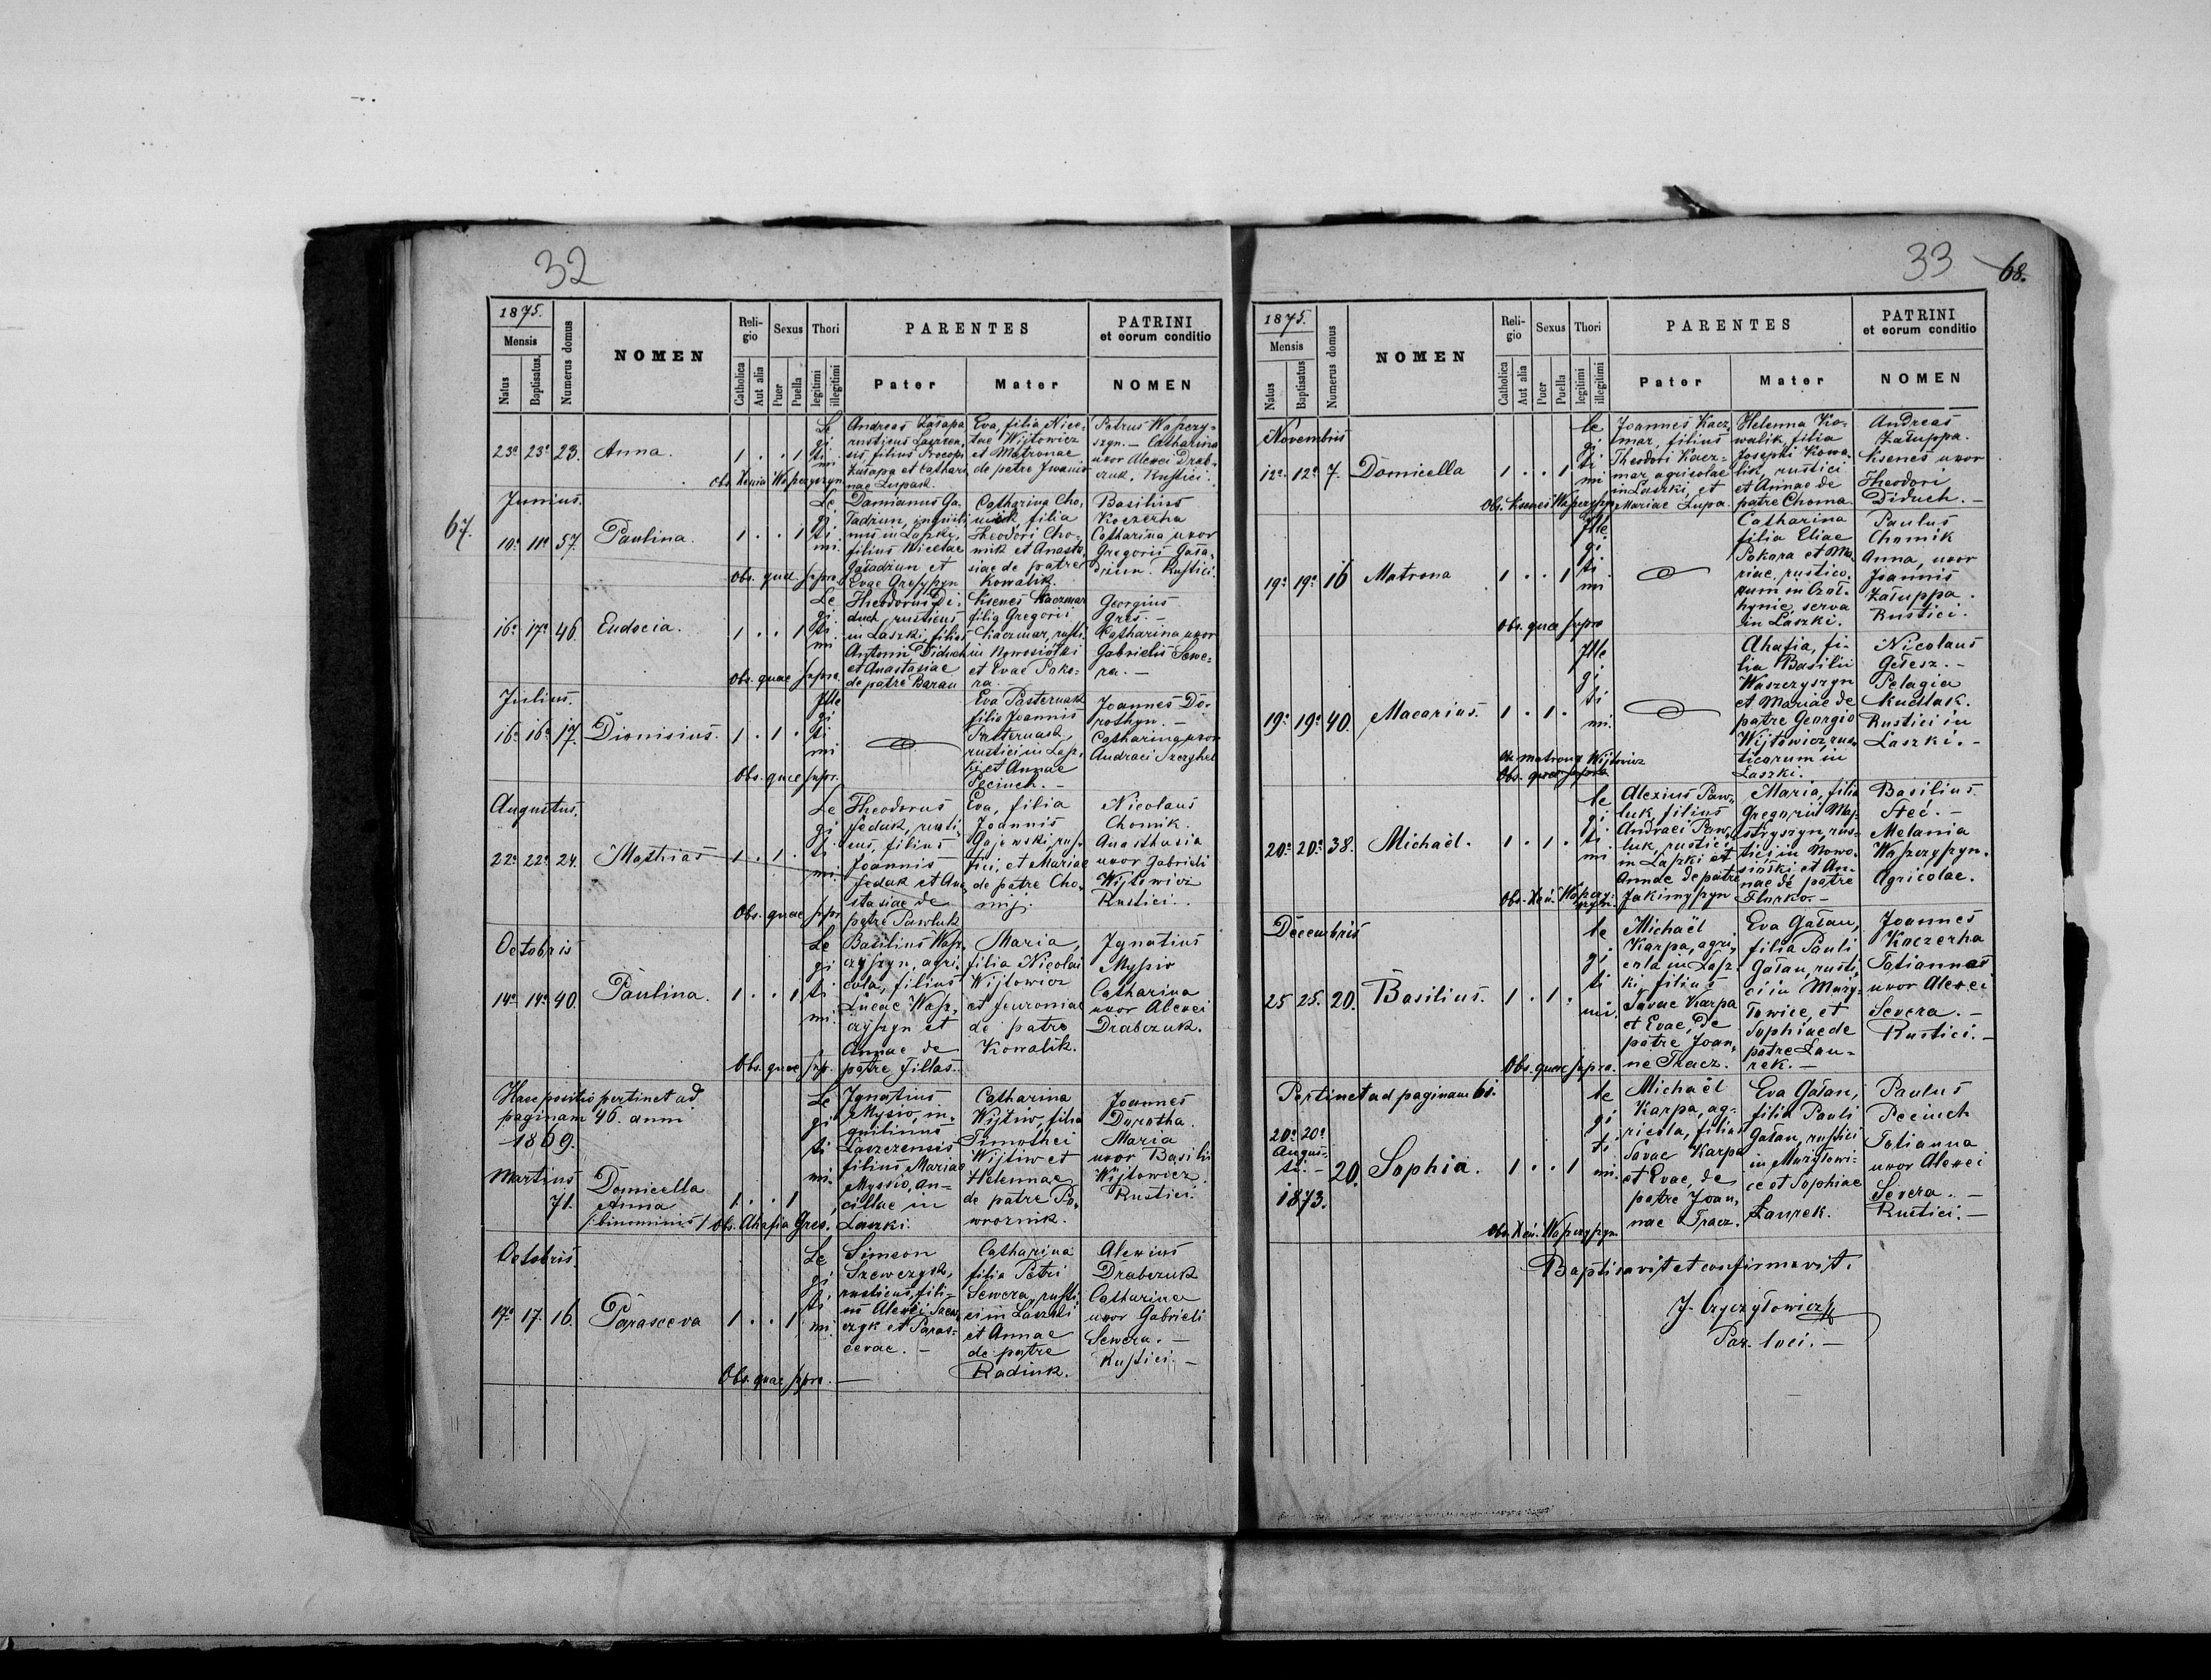 32
67.
1875.
Mensis
Natus
Baptisatus
Numerus domus
NOMEN
Religio
Catholica
Aut alia
Sexus
Puer
Puella
Thori
legitimi
illegitimi
PARENTES
Pater
Mater
PATRINI
et eorum conditio
NOMEN
23a 23a 23. Anna. 1 . . 1
Le
gi
ti
mi
Andreas Załapa
rusticus
filius Procopi
Załapa et Cathari
nae Lupak.
Eva, filia Nice-
tae Wijtowicz
et Matronae
de patre
Petrus Waszczy-
szyn. – Catharina
uxor Alexei Drab-
czuk. Rustici.
Obs. Xenia Waszczyszyn
Junius.
10a 11a 57. Paulina. 1 . . 1
Le
gi
ti
mi.
Damianus Ga-
ładzun, inquili-
nus in Laszki,
filius Nicetae
Gaładzun et
Evae
Catharina Cho-
mik filia
Theodori Cho-
mik et Anasta-
siae de patre
Kowalik.
Basilius
Koczerha
Catharina uxor
Gregorii Gała-
dzun. Rustici.
Obs. quae supra
16a 17a 46. Eudocia. 1 . . 1
Le
gi
ti
mi
Theodorus Di-
duch, rusticus
in Laszki, filius
Antonii Diduch
et Anastasiae
de patre Baran
Ksenes Kaczmar
filia Gregorii
Kaczmar, rusti.
in Nowosiółki
et Evae Poko-
ra. –
Georgius
Gres. –
Catharina uxor
Gabrielis Sewe-
ra. –
Obs. quae supra.
Julius.
16a 16a 17. Dionisius. 1 . 1 .
Ille
gi
ti
mi
Eva Pasternak
filia Joannis
Pasternak,
rustici in Lasz-
ki et Annae
Peciuch. –
Joannes Do-
roshyn. –
Catharina uxor
Andraei
Obs. quae supr.
Augustus.
22a 22a 24. Mathias 1 . 1 .
Le
gi
ti
mi.
Theodorus
Fedak, rusti-
cus, filius
Joannis
Fedak et Ana
stasiae de
patre Pawluk
Eva, filia
Joannis
Gajewski, rus-
tici, et Mariae
de patre Cho-
mij.
Nicolaus
Chomik.
Anasthasia
uxor Gabrieli
Wijtowicz
Rustici.
Obs. quae supr
Octobris
14a 14a 40. Paulina. 1 . . 1
Le
gi
ti
mi.
Basilius Wasz-
czyszyn, agri-
cola, filius
Lucae Wasz-
czyszyn et
Annae de
patre Fillas.
Maria,
filia Nicolai
Wijtowicz
et Feuroniae
de patre
Kowalik.
Ignatius
Myssio
Catharina
uxor Alexei
Drabczuk.
Obs. quae sup.
Haec positio pertinet ad
paginam 46. anni
1869.
Martius
71. Domicella
Anna
/:binominis:/ 1 . . 1
Le
gi
ti
mi.
Ignatius
Mysio, in-
quilinus
Laszczensis
filius Mariae
Myssio, an-
cillae in
Laszki.
Catharina
Wijtiw, filia
Timothei
Wijtiw et
Helennae
de patre Po-
woroznik.
Joannes
Dorotha.
Maria
uxor Basilii
Wijtowicz.
Rustici.
Obs. Ahafia Gres.
Octobris.
17a 17. 16. Parasceva 1 . . 1
Le
gi
ti
mi.
Simeon
Szewczyk,
rusticus, fili-
us Alexei Szew-
czyk et Paras-
cevae. –
Catharina
filia Petri
Sewera, rusti
ci in Laszki
et Annae
de patre
Radiuk.
Alexius
Drabczuk
Catharina
uxor Gabrieli
Sewera. –
Rustici. –
Obs. quae supra. –
33
68.
1875.
Mensis
Natus
Baptisatus
Numerus domus
NOMEN
Religio
Catholica
Aut alia
Sexus
Puer
Puella
Thori
legitimi
illegitimi
PARENTES
Pater
Mater
PATRINI
et eorum conditio
NOMEN
Novembris
12a 12a 7. Domicella 1 . . 1
le
gi
ti
mi
Joannes Kacz-
mar, filius
Theodori Kacz-
mar agricolae
in Laszki, et
Mariae Lupa.
Helenna Ko-
walik, filia
Josephi Kowa-
lik, rustici
et Annae de
patre Choma.
Andreas
Załuppa.
Ksenes uxor
Theodori
Diduch. –
Obs. Ksenes Waszczyszyn
19a 19a 16 Matrona 1 . . 1
Ille
gi
ti
mi
Catharina
filia Eliae
Pokora et Ma-
riae, rustico-
rum in
serva
in Laszki.
Paulus
Chomik
Anna, uxor
Joannis
Załuppa.
Rustici.
Obs. quae supra
19a 19a 40. Macarius. 1 . 1 .
Ille
gi
ti
mi.
Ahafia, fi-
lia Basilii
Waszczyszyn
et Mariae de
patre Georgio
Wijtowicz, rus-
ticorum in
Laszki.
Nicolaus
Gelesz. –
Pelagia
Kudłak.
Rustici in
Laszki. –
Ob. Matrona Wijtowicz
Obs. quae supra
20a 20a 38. Michaël. 1 . 1 .
le
gi
ti
mi.
Alexius Paw-
luk, filius
Andraei Paw-
luk, rustici
in Laszki et
Annae de patre
Jakimyszyn
Maria, filia
Gregorii May-
strysyn, rus-
tici in Nowo-
siółki et An-
nae de patre
Flurko. –
Basilius
Steć. –
Melania
Waszczyszyn.
Agricolae.
Obs. Xen. Waszczy-
szyn.
Decembris
25 25. 20. Basilius. 1 . 1 .
le
gi
ti
mi.
Michaël
Karpa, agri-
cola in Lasz-
ki, filius
Savae Karpa
et Evae, de
patre Joan-
ne Tkacz.
Eva Gałan,
filia Pauli
Gałan, rusti-
ci in Muży-
łowice, et
Sophiae de
patre Lau-
rek. –
Joannes
Koczerha
Tatiannas
uxor Alexei
Severa. –
Rustici. –
Obs. quae supra.
Pertinet ad paginam 61.
20a 20a
Augus-
ti. –
1873.
20. Sophia. 1 . . 1
le
gi
ti
mi.
Michaël
Karpa, ag-
ricola, filius
Savae Karpa
et Evae, de
patre Joan-
nae Tracz.
Eva Gałan,
filia Pauli
Gałan, rustici
in Mużyłowi-
ce et Sophiae
Laurek.
Paulus
Peciuch
Tatianna
uxor Alexei
Severa. –
Rustici. –
Obs. Xen. Waszczyszyn.
Baptisavit et confirmavit.
Par. loci. –